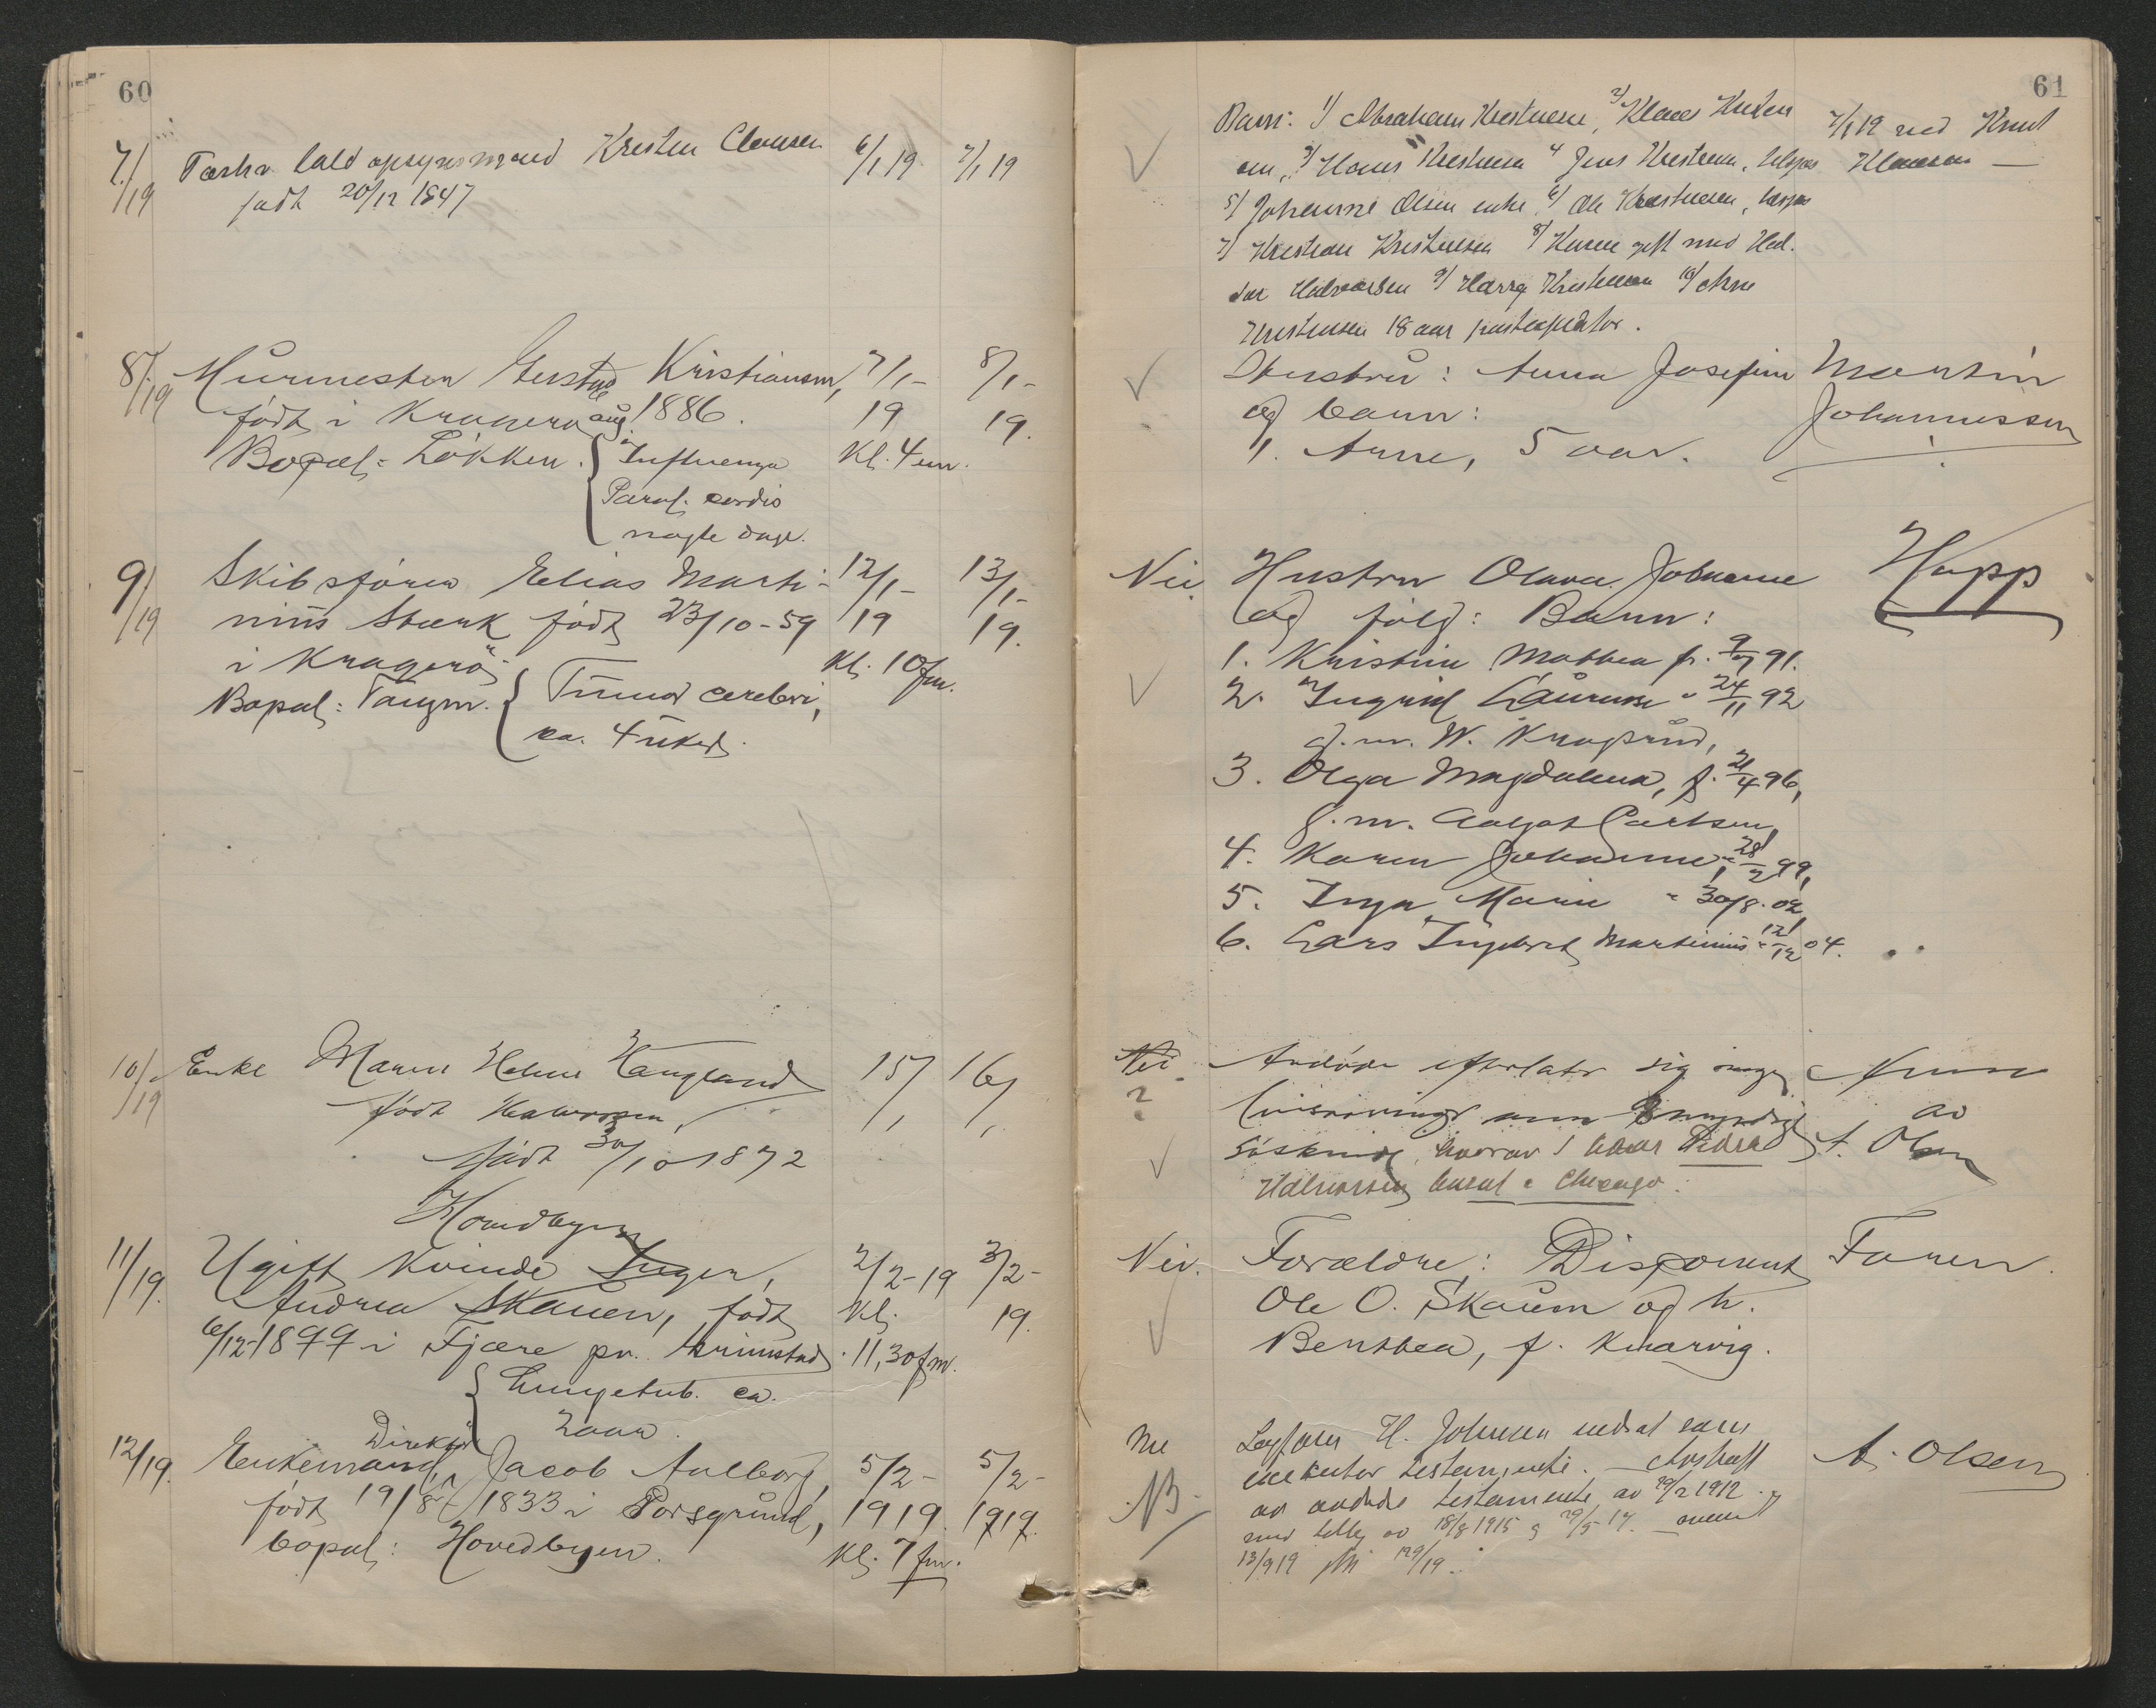 60
7/19 Forhv. told opsynsmand Kresten Clausen 6/1 19 7/1 19
født 20/12 1847
8/19 Murmester Gustav Kristiansen, 7/1- 8/1-
født i Kragerø aug. 1886. 19 19.
Bopæl: Løkken. Influenza Kl. 4 em.
Paral. cordis
nogle dage.
9/19 Skibsfører Elias Marti- 12/1- 13/1-
nius Stærk født 23/10-59 19 19.
i Kragerø Kl. 10 fm.
Bopæl: Tangen. Tumor cerebri,
ca. 4 uker.
10/19 Enke Maren Helene Haugland 15/1 16/1
født Halvorsen,
født 30/10 1872
Hovedbyen
11/19. Ugift kvinde Inger, 2/2-19 3/2-
Andrea Skauen, født Kl. 19.
6/12-1899 i Fjære pr. Grimstad. 11,30 fm.
Lungetub. ca.
2 aar.
Direktør
12/19. Enkemand, Jacob Aalborg, 5/2- 5/2-
født 19/8 1833 i Porsgrund, 1919. 1919.
bopæl: Hovedbyen. Kl. 7 fm.
61
Barn: 1/ Abraham Kristensen, 2/ Klaus Kristen 7/1 19 ved Knut
sen, 3/ Hans Kristensen 4 Jens Kristensen, Klausen —
5/ Johanne Olsen enke 6/ Ole Kristensen,
7/ Kristian Kristensen 8/ Karen gift med Hal.
dor Halvorsen 9/ Harry Kristensen 10/ Arne
Kristensen 18 aar postexpeditør.
Hustru: Anna Josefine Martin
og barn: Johannessen
1. Arne, 5 aar.
Nei. Hustru Olava Johanne Hupp
og følg: Barn:
1. Kristine Mathea f. 9/7 91.
2. Ingrid Laurense " 24/11 92
g. m. W. Kragsrud,
3. Olga Magdalena, f. 21/4 96,
g. m. Carlsen,
4. Karen Johanne, " 28/2 99,
5. Inga Marie " 30/8. 02,
6. Lars Ingebret Martinius " 12/12 04.
Nei Avdøde efterlater sig ingen
? livsarvinger men 8 myndige av
søskende, hvorav 1 A. Olsen
Halvorsen bosat i Chicago.
Nei. Forældre: Disponent Faren.
Ole O. Skauen og h.
Benthea, f. Knarvig.
Nei H. Johnsen indsat som
executor testamenti. — Avskrift A. Olsen
NB. av avdødes testamente av 29/2 1912
med till. av 18/8 1915 og 29/5 17.
13/9 19 129/19.